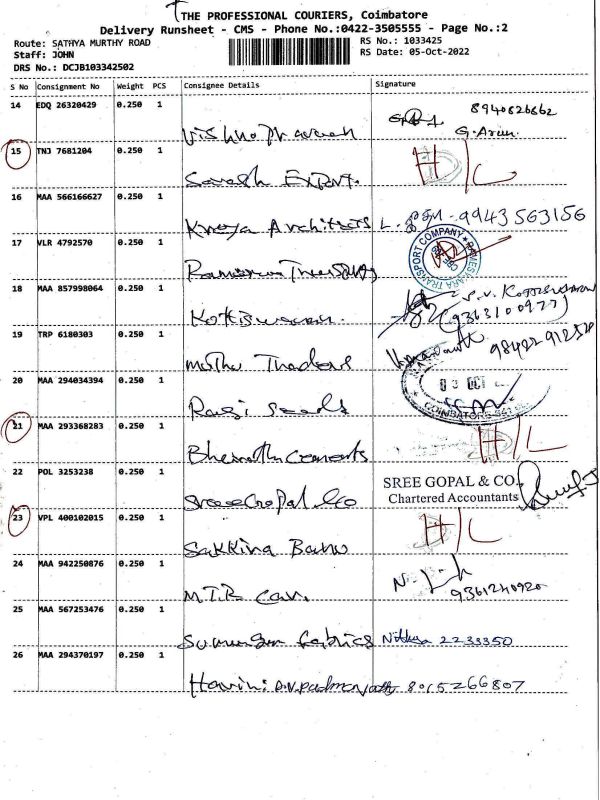 THE PROFESSIONAL COURIERS, Coimbatore
Delivery Runsheet - CMS - Phone No.:0422-3505555 - Page No.:2
Route: SATHYA MURTHY ROAD
Staff: JOHN
DRS No.: DCJB103342502
RS No.: 1033425
RS Date: 05-Oct-2022
S No Consignment No Weight PCS Consignee Details Signature
14 EDQ 26320429 0.250 1 8940826862
G. Arun
15 TNJ 7681204 0.250 1 H/L
16 MAA 566166627 0.250 1 9943563156
Kreya Architects
17 VLR 4792570 0.250 1
TRANSPORT COMPANY
18 MAA 857998064 0.250 1
(9363100977)
Kotiswaran.
19 TRP 6180303 0.250 1
Muthu Traders
20 MAA 294034394 0.250 1
03 OCT
Rasi Seeds
COIMBATORE
21 MAA 293368283 0.250 1 H/L
Bharathi cements
22 POL 3253238 0.250 1 SREE GOPAL & CO.
Chartered Accountants
Sree Gopal & co
23 VPL 400102015 0.250 1 H/L
Sakkina Banu
24 MAA 942250876 0.250 1
9361240920
M.T.R Car.
25 MAA 567253476 0.250 1
fabrics Nithya 2233350
26 MAA 294370197 0.250 1
Harini 8015266807